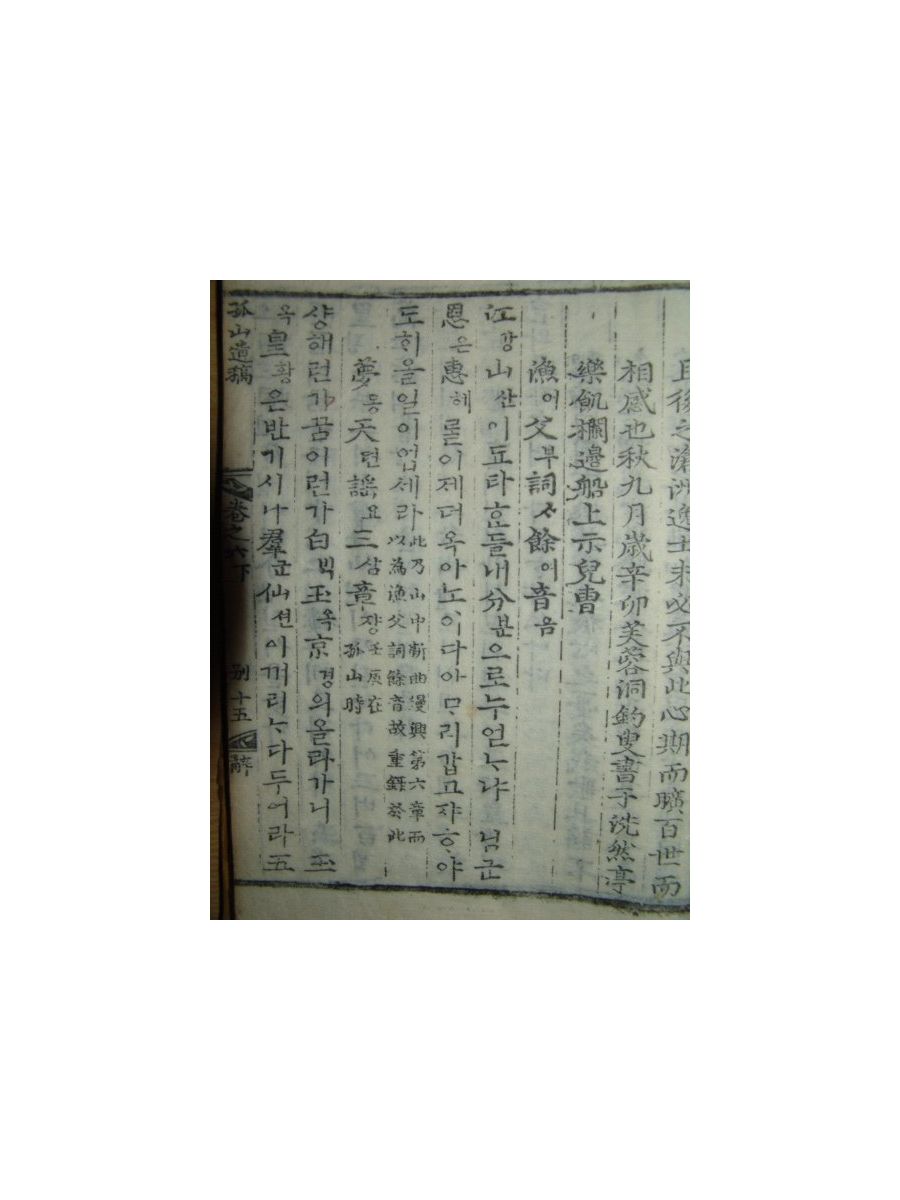 且後之滄洲逸士未必不與此心期而曠百世而
相感也秋九月歲辛卯芙蓉洞釣叟書于洗然亭
樂飢欄邊船上示兒曹
漁어父부詞ᄉ餘여音음
江강山산이됴타ᄒᆞᆫ들내分분으로누언ᄂᆞ냐님군
恩은惠혜ᄅᆞᆯ이제더옥아노이다아ᄆᆞ리갑고쟈ᄒᆞ야
도ᄒᆡ올일이업세라此乃山中新曲漫興第六章而
以為漁父詞餘音故重錄於此
夢몽天텬謠요三삼章쟝壬辰在
孤山時
샹해런가ᄭᅮᆷ이런가白ᄇᆡᆨ玉옥京경의올라가니玉
옥皇황은반기시나羣군仙션이ᄭᅥ리ᄂᆞ다두어라五
孤山遺稿
卷之六下
別十五
辭